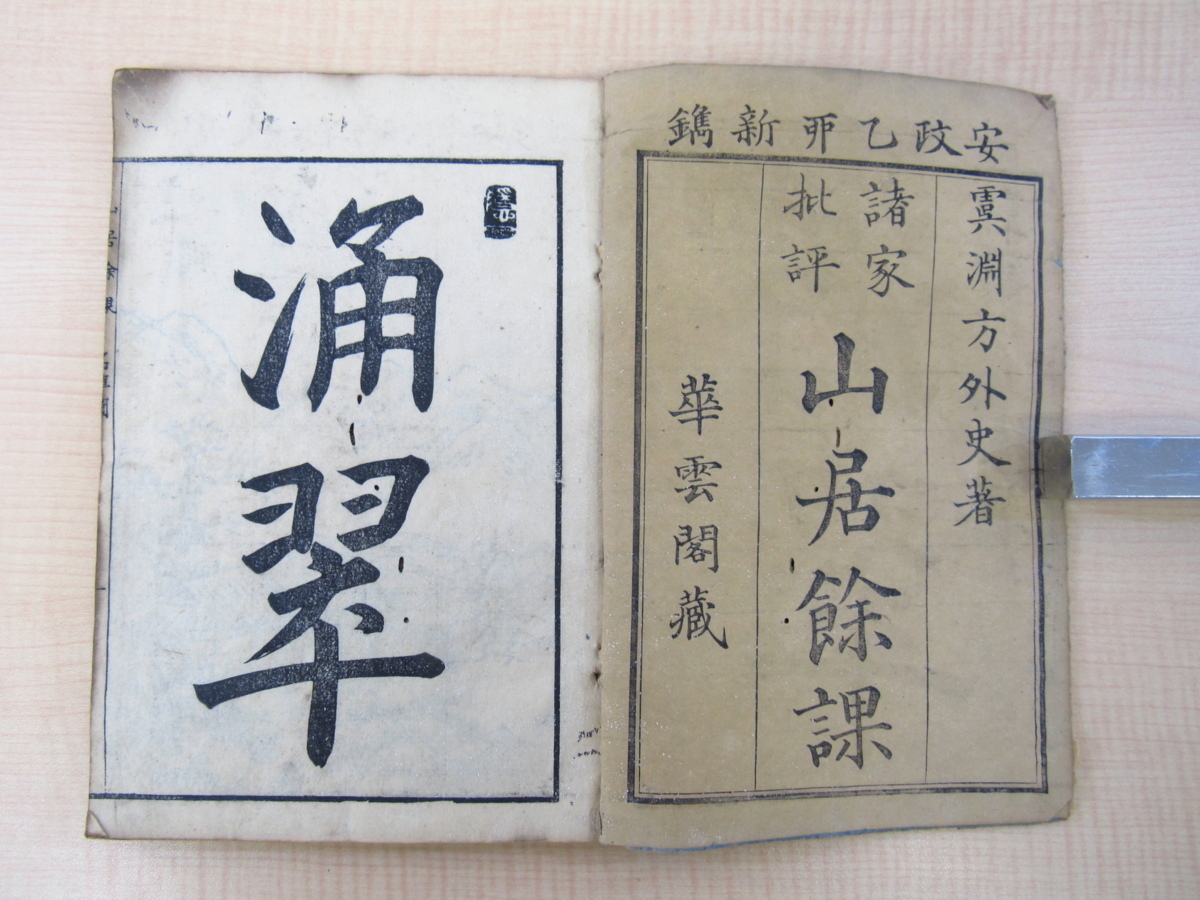 安政乙卯新鐫
虞淵方外史著
諸家
批評
山居餘課
華雲閣藏
涌翠